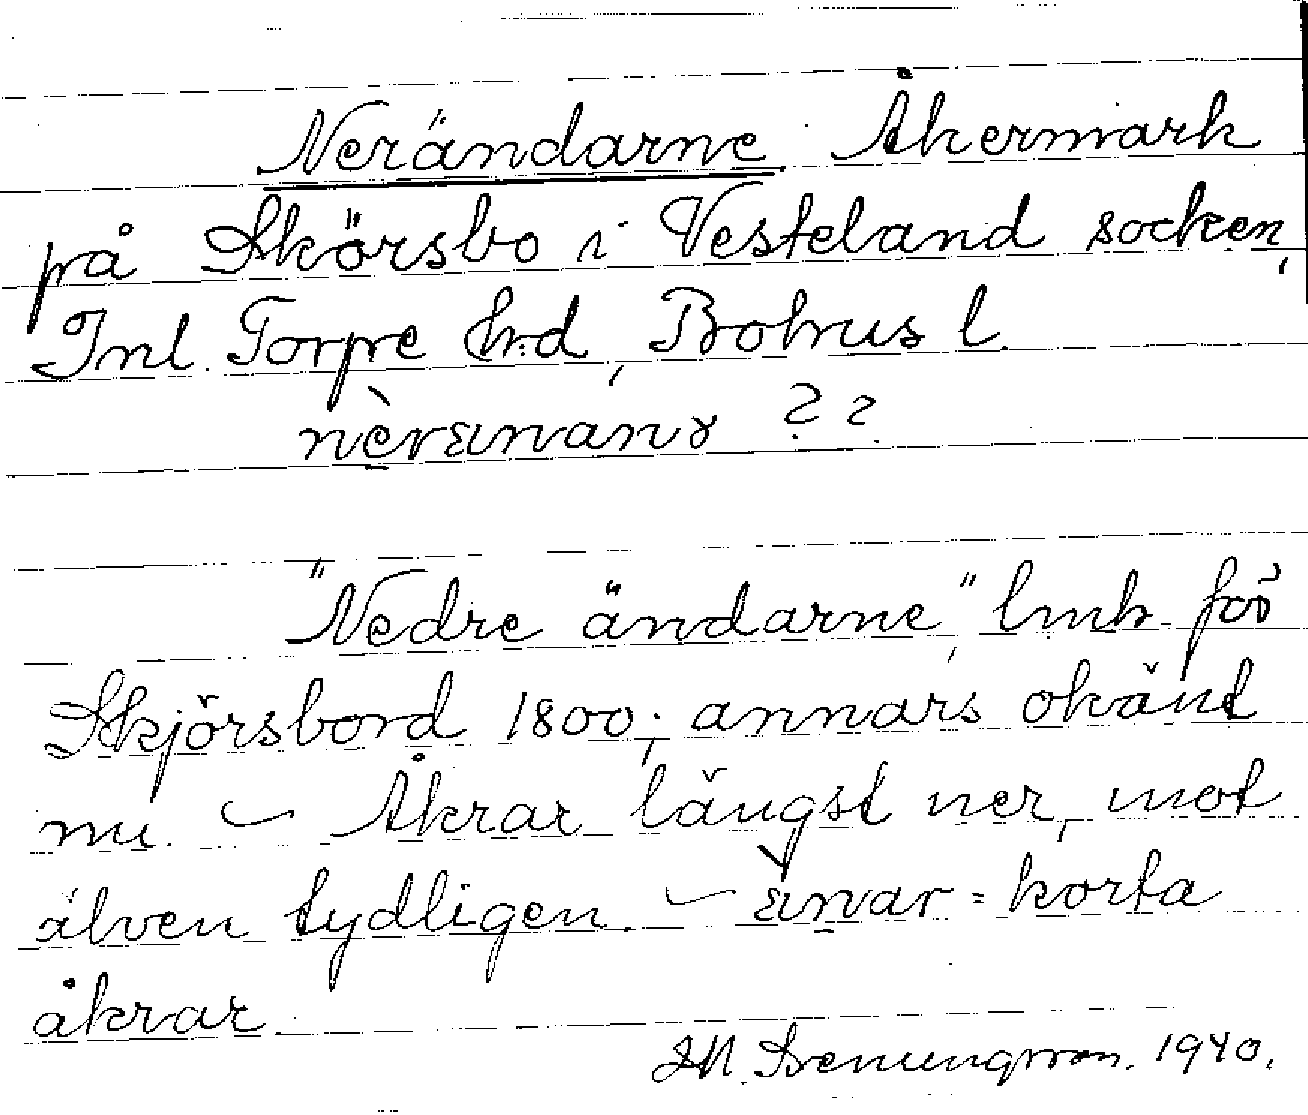 Nerändarne Åkermark
på Skörsbo i Vesteland socken,
Inl. Torpe hrd, Bohus l.
nèrɛnnanɤ ??
"Nedre ändarne", lmk för
Skjörsbord 1800; annars okänd
nu. – Åkrar längst ner, mot
älven tydligen. – ɛnnar = korta
åkrar
JM. Svenungsson. 1940.